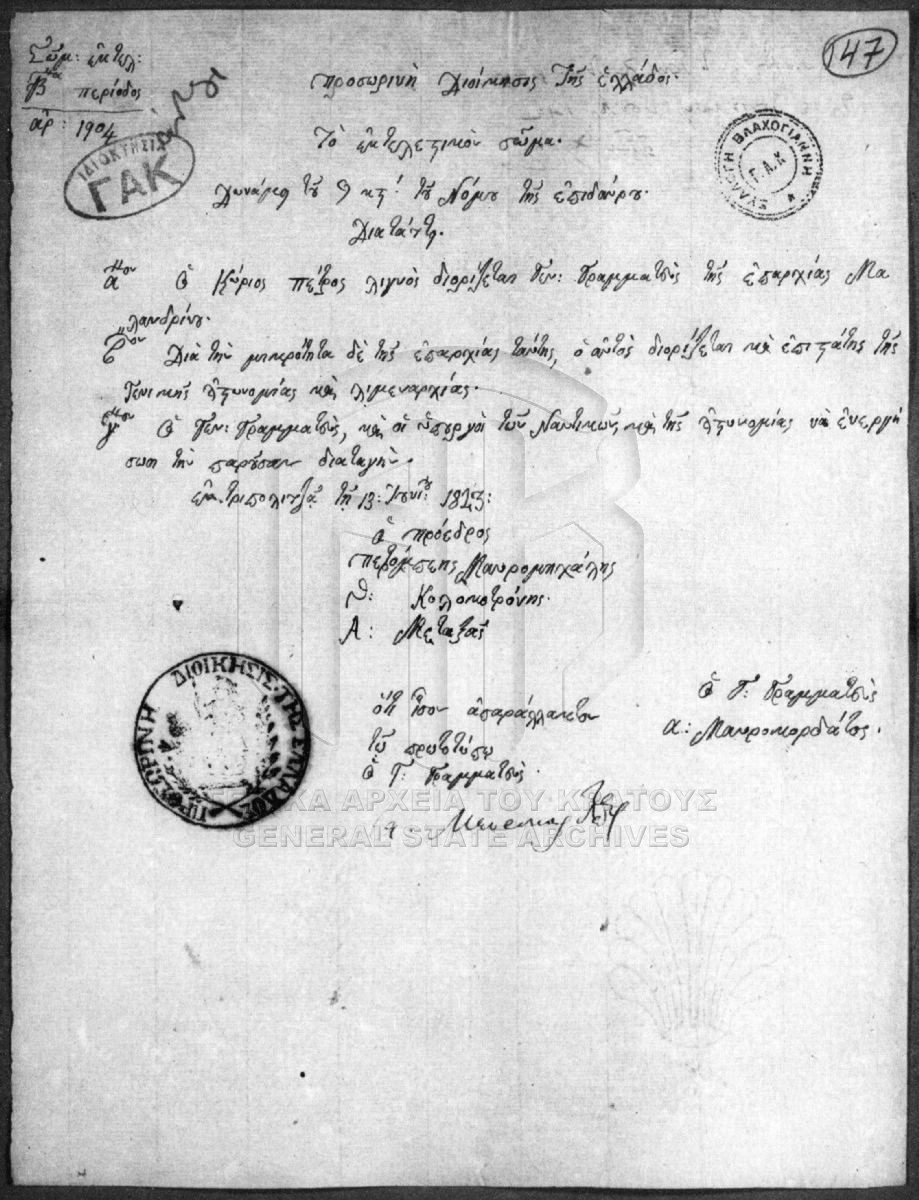 147
Σῶμ: ἐκτελ:
Βα περίοδος
ἀρ: 1904
ΙΔΙΟΚΤΗΣΙΑ
ΓΑΚ
ΣΥΛΛΟΓΗ ΒΛΑΧΟΓΙΑΝΝΗ
Γ.Α.Κ
Προσωρινὴ Διοίκησις τῆς Ἑλλάδος.
Τὸ ἐκτελεστικὸν σῶμα.
Δυνάμει τοῦ κτ: τοῦ Νόμου τῆς Ἐπιδαύρου.
Διατάττει.
αον Ὁ Κύριος Πέτρος Λιγνὸς διορίζεται Γεν: Γραμματεὺς τῆς ἐπαρχίας Μα
λανδρίνου.
βον Διὰ τὴν μικρότητα δὲ τῆς ἐπαρχίας ταύτης, ὁ αὐτὸς διορίζεται καὶ ἐπιστάτης τῆς
Γενικῆς Ἀστυνομίας καὶ λιμεναρχίας.
γον Ὁ Γεν: Γραμματεὺς, καὶ οἱ ὑπουργοὶ τῶν Ναυτικῶν, καὶ τῆς Ἀστυνομίας νὰ ἐνεργή
σωσι τὴν παροῦσαν διαταγήν.
ἐν Τριπολιτζᾷ τῇ 13: Ἰουνίου 1823:
Ὁ Πρόεδρος
Πετρόμπεης Μαυρομηχάλης
Θ: Κολοκοτρόνης.
Α: Μεταξᾶς
Ὁ Γ: Γραμματεὺς
Α: Μαυροκορδάτος.
ὅτι ἶσον ἀπαράλλακτον
τῷ πρωτοτύπῳ
Ὁ Γ: Γραμματεὺς.
ΠΡΟΣΩΡΙΝΗ ΔΙΟΙΚΗΣΙΣ ΤΗΣ ΕΛΛΑΔΟΣ
ΓΕΝΙΚΑ ΑΡΧΕΙΑ ΤΟΥ ΚΡΑΤΟΥΣ
GENERAL STATE ARCHIVES